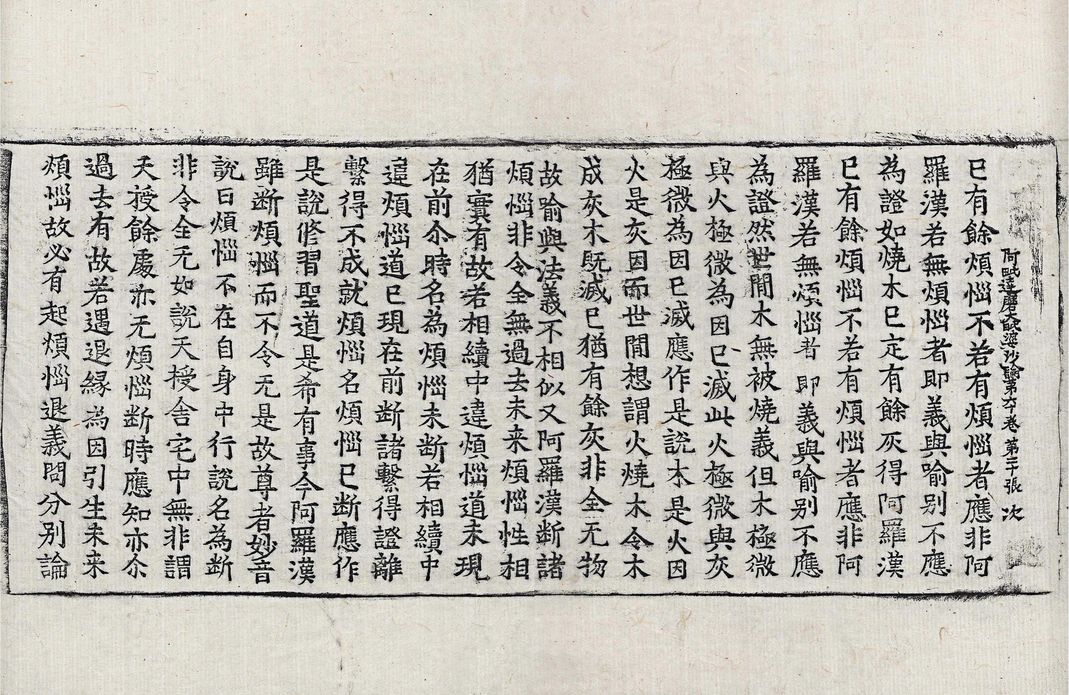 阿毗達磨毗婆沙論第六十卷 第二十張 次
已有餘煩惱不若有煩惱者應非阿
羅漢若無煩惱者即義與喻別不應
為證如燒木已定有餘灰得阿羅漢
已有餘煩惱不若有煩惱者應非阿
羅漢若無煩惱者即義與喻別不應
為證然世間木無被燒義但木極微
與火極微為因已滅此火極微與灰
極微為因已滅應作是說木是火因
火是灰因而世間想謂火燒木令木
成灰木既滅已猶有餘灰非全无物
故喻與法義不相似又阿羅漢断諸
煩惱非令全無過去未来煩惱性相
猶實有故若相續中違煩惱道未現
在前尒時名為煩惱未断若相續中
違煩惱道已現在前断諸繫得證離
繫得不成就煩惱名煩惱已断應作
是說修習聖道是希有事令阿羅漢
雖断煩惱而不令无是故尊者妙音
說曰煩惱不在自身中行說名為断
非令全无如說天授舍宅中無非謂
天授餘處亦无煩惱断時應知亦尒
過去有故若遇退緣為因引生未来
煩惱故必有起煩惱退義問分別論